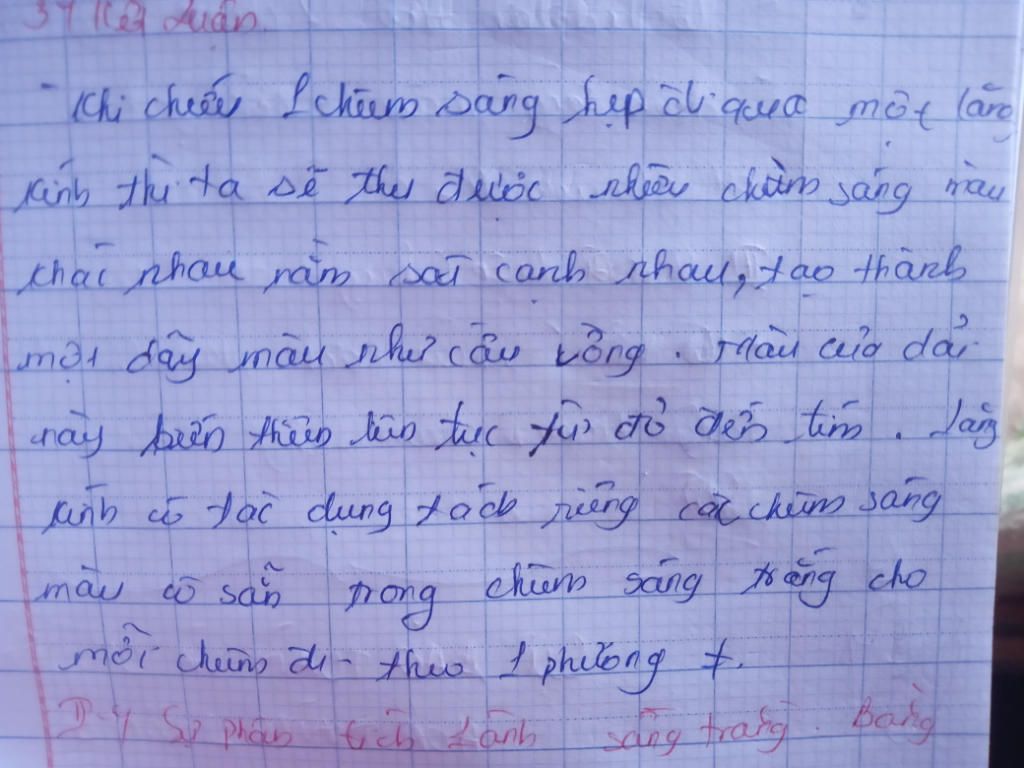 3, Kết luận.
- Khi chiếu 1 chùm sáng hẹp đi qua một lăng
kính thì ta sẽ thu được nhiều chùm sáng màu
khác nhau nằm sát cạnh nhau, tạo thành
một dãy màu như cầu vồng. Màu của dải
này biến thiên liên tục từ đỏ đến tím. Lăng
kính có tác dụng tách riêng các chùm sáng
màu có sẵn trong chùm sáng trắng cho
mỗi chùm đi theo 1 phương ≠.
Sự phân tích ánh sáng trắng. Bằng